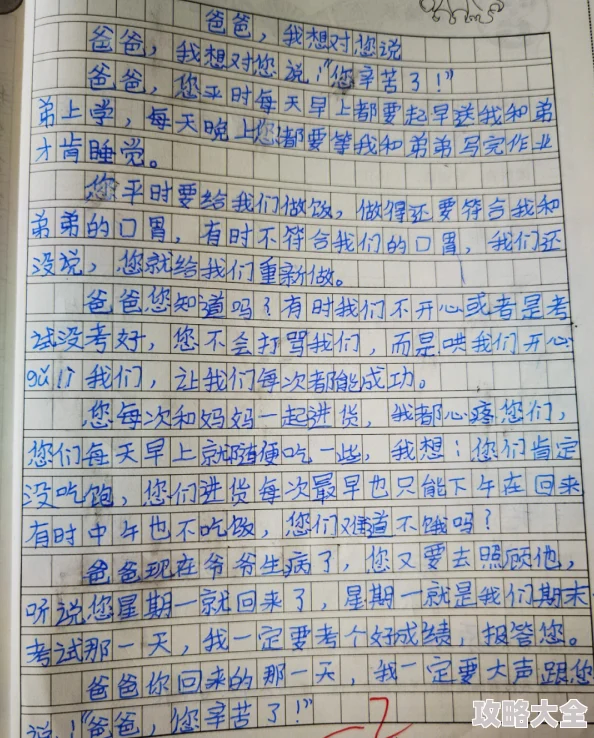 爸爸，我想对您说
爸爸，我想对您说！“您辛苦了！”
爸爸，您平时每天早上都要起早送我和弟
弟上学，每天晚上您都要等我和弟弟写完作业
才肯睡觉。
您平时要给我们做饭，做得还要符合我和
弟弟的口胃，有时不符合我们的口胃，我们还
没说，您就给我们重新做。
爸爸您知道吗？有时我们不开心或者是考
试没考好，您不会打骂我们，而是哄我们开心
gǔ lì 我们，让我们每次都能成功。
您每次和妈妈一起进货，我都心疼您们，
您们每天早上就随便吃一些，我想：您们肯定
没吃饱，您们进货每次最早也只能下午在回来
有时中午也不吃饭，您们难道不饿吗？
爸爸现在爷爷生病了，您又要去照顾他，
听说您星期一就回来了，星期一就是我们期末
考试那一天，我一定要考个好成绩，报答您。
爸爸你回来的那一天，我一定要大声跟您
说！“爸爸，您辛苦了！”
攻略大全